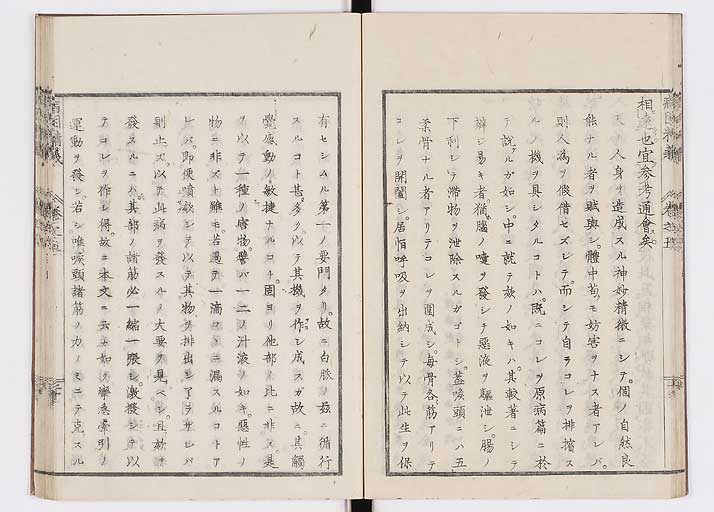 相違也宜参考通會矣
夫レ人身ヲ造成スル神妙精微ニシテ。個ノ自然良
能ナル者ヲ賦與シ。體中苟モ妨害ヲナス者アレバ。
則人為ヲ假借セズシテ。而シテ自ラコレヲ排擯ス
ルノ機ヲ具シタルコトハ。既ニコレヲ原病篇ニ於
テ説クガ如シ。中ニ就テ欬ノ如キハ。其較著ニシテ
辨シ易キ者猶腦ノ嚏ヲ發シテ惡液ヲ驅泄シ。腸ノ
下利シテ滯物ヲ泄除スルガゴトシ。蓋喉頭ニハ五
柔骨ナル者アリテコレヲ圍成シ。毎骨各筋アリテ
コレヲ開闔シ。居恒呼吸ヲ出納シテ以テ此生ヲ保
有セシムル第一ノ要門タリ。故ニ白脈ノ茲ニ循行
スルコト甚多ク。以テ其機ヲ作シ成スガ故ニ。其觸
覺感動ノ敏捷ナルコト。固ヨリ他部ノ比ニ非ス。是
ヲ以テ一種ノ磨物。譬バ一二ノ汁液ノ如キ。惡性ノ
物ニ非ズト雖モ。若過テ一滴コヽニ漏スルコトア
レバ。即便噴欬シテ以テ其物ヲ排出シ了ラザレバ
則止ズ。以テ此病ヲ發スルノ大要ヲ見ベシ。且欬ヲ
發スルニハ。其部ノ諸筋必一縮一張シ。激發シテ以
テコレヲ作シ得。故ニ本文ニ云カ如ク。攣急牽引ノ
運動ヲ發シ。若シ唯喉頭諸筋ノ力ノミニテ克スル
病因精義
巻之五